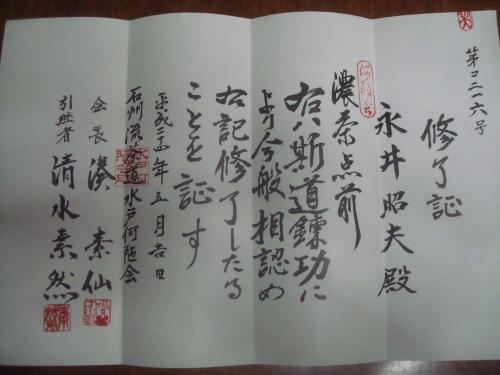 第コ二一六号
修了証
永井昭夫殿
濃茶点前
右八斯道錬功に
より今般相認め
右記修了したる
ことを証す
平成二四年五月吉日
石州流茶道水戸何陋会
会長 湊素仙
引継者 清水素然